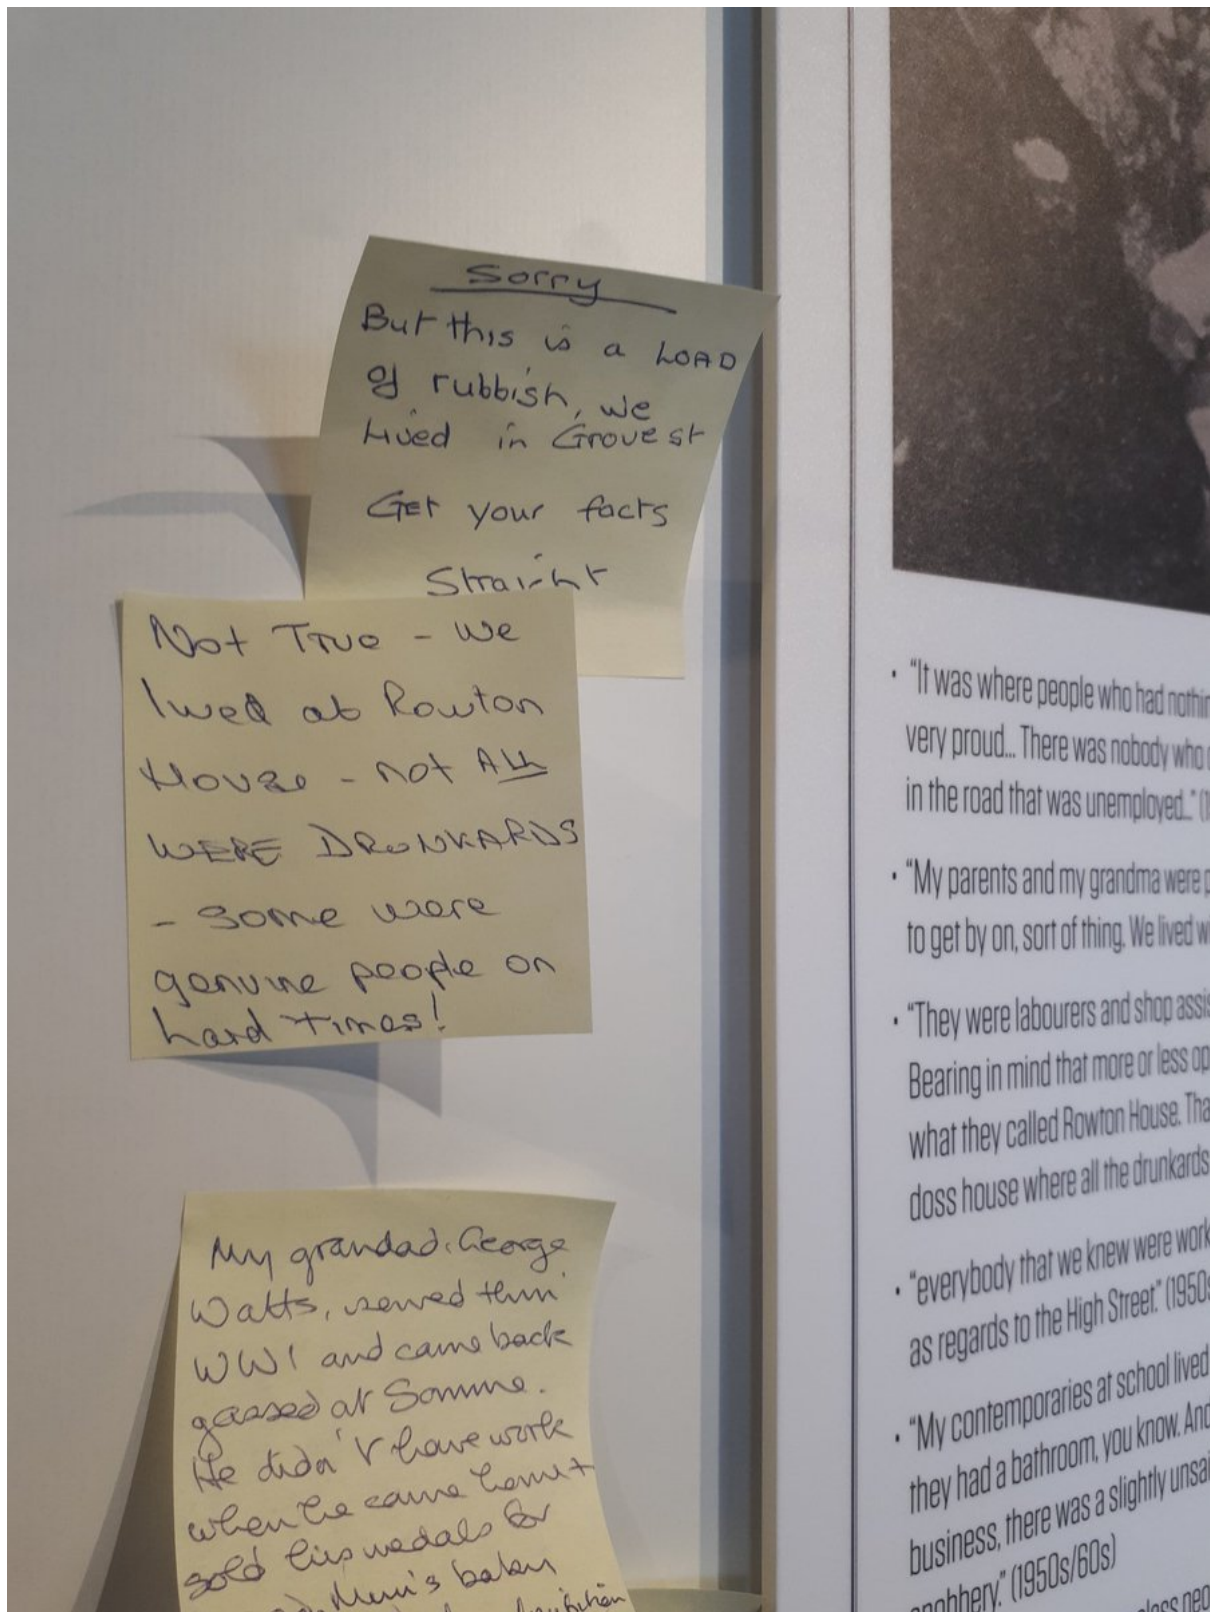 Sorry
But this is a LOAD
of rubbish, we
lived in Grove st
Get your facts
Straight
Not True - we
lived at Rowton
House - not ALL
WERE DRUNKARDS
- some were
genuine people on
hard times!
My grandad, George
Watts, served thru
WW1 and came back
gassed at Somme.
He didn't have work
when he came home +
sold his medals for
Mum's baby
• "It was where people who had
very proud... There was nobody who
in the road that was unemployed..."
• "My parents and my grandma were
to get by on, sort of thing. We lived
• "They were labourers and shop
Bearing in mind that more or less
what they called Rowton House.
doss house where all the drunkards
• "everybody that we knew were
as regards to the High Street."
• "My contemporaries at school lived
they had a bathroom, you know. And
business, there was a slightly
snobbery." (1950s/60s)